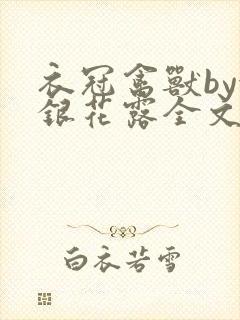 衣冠禽獸by
銀花露全文
白衣若雪